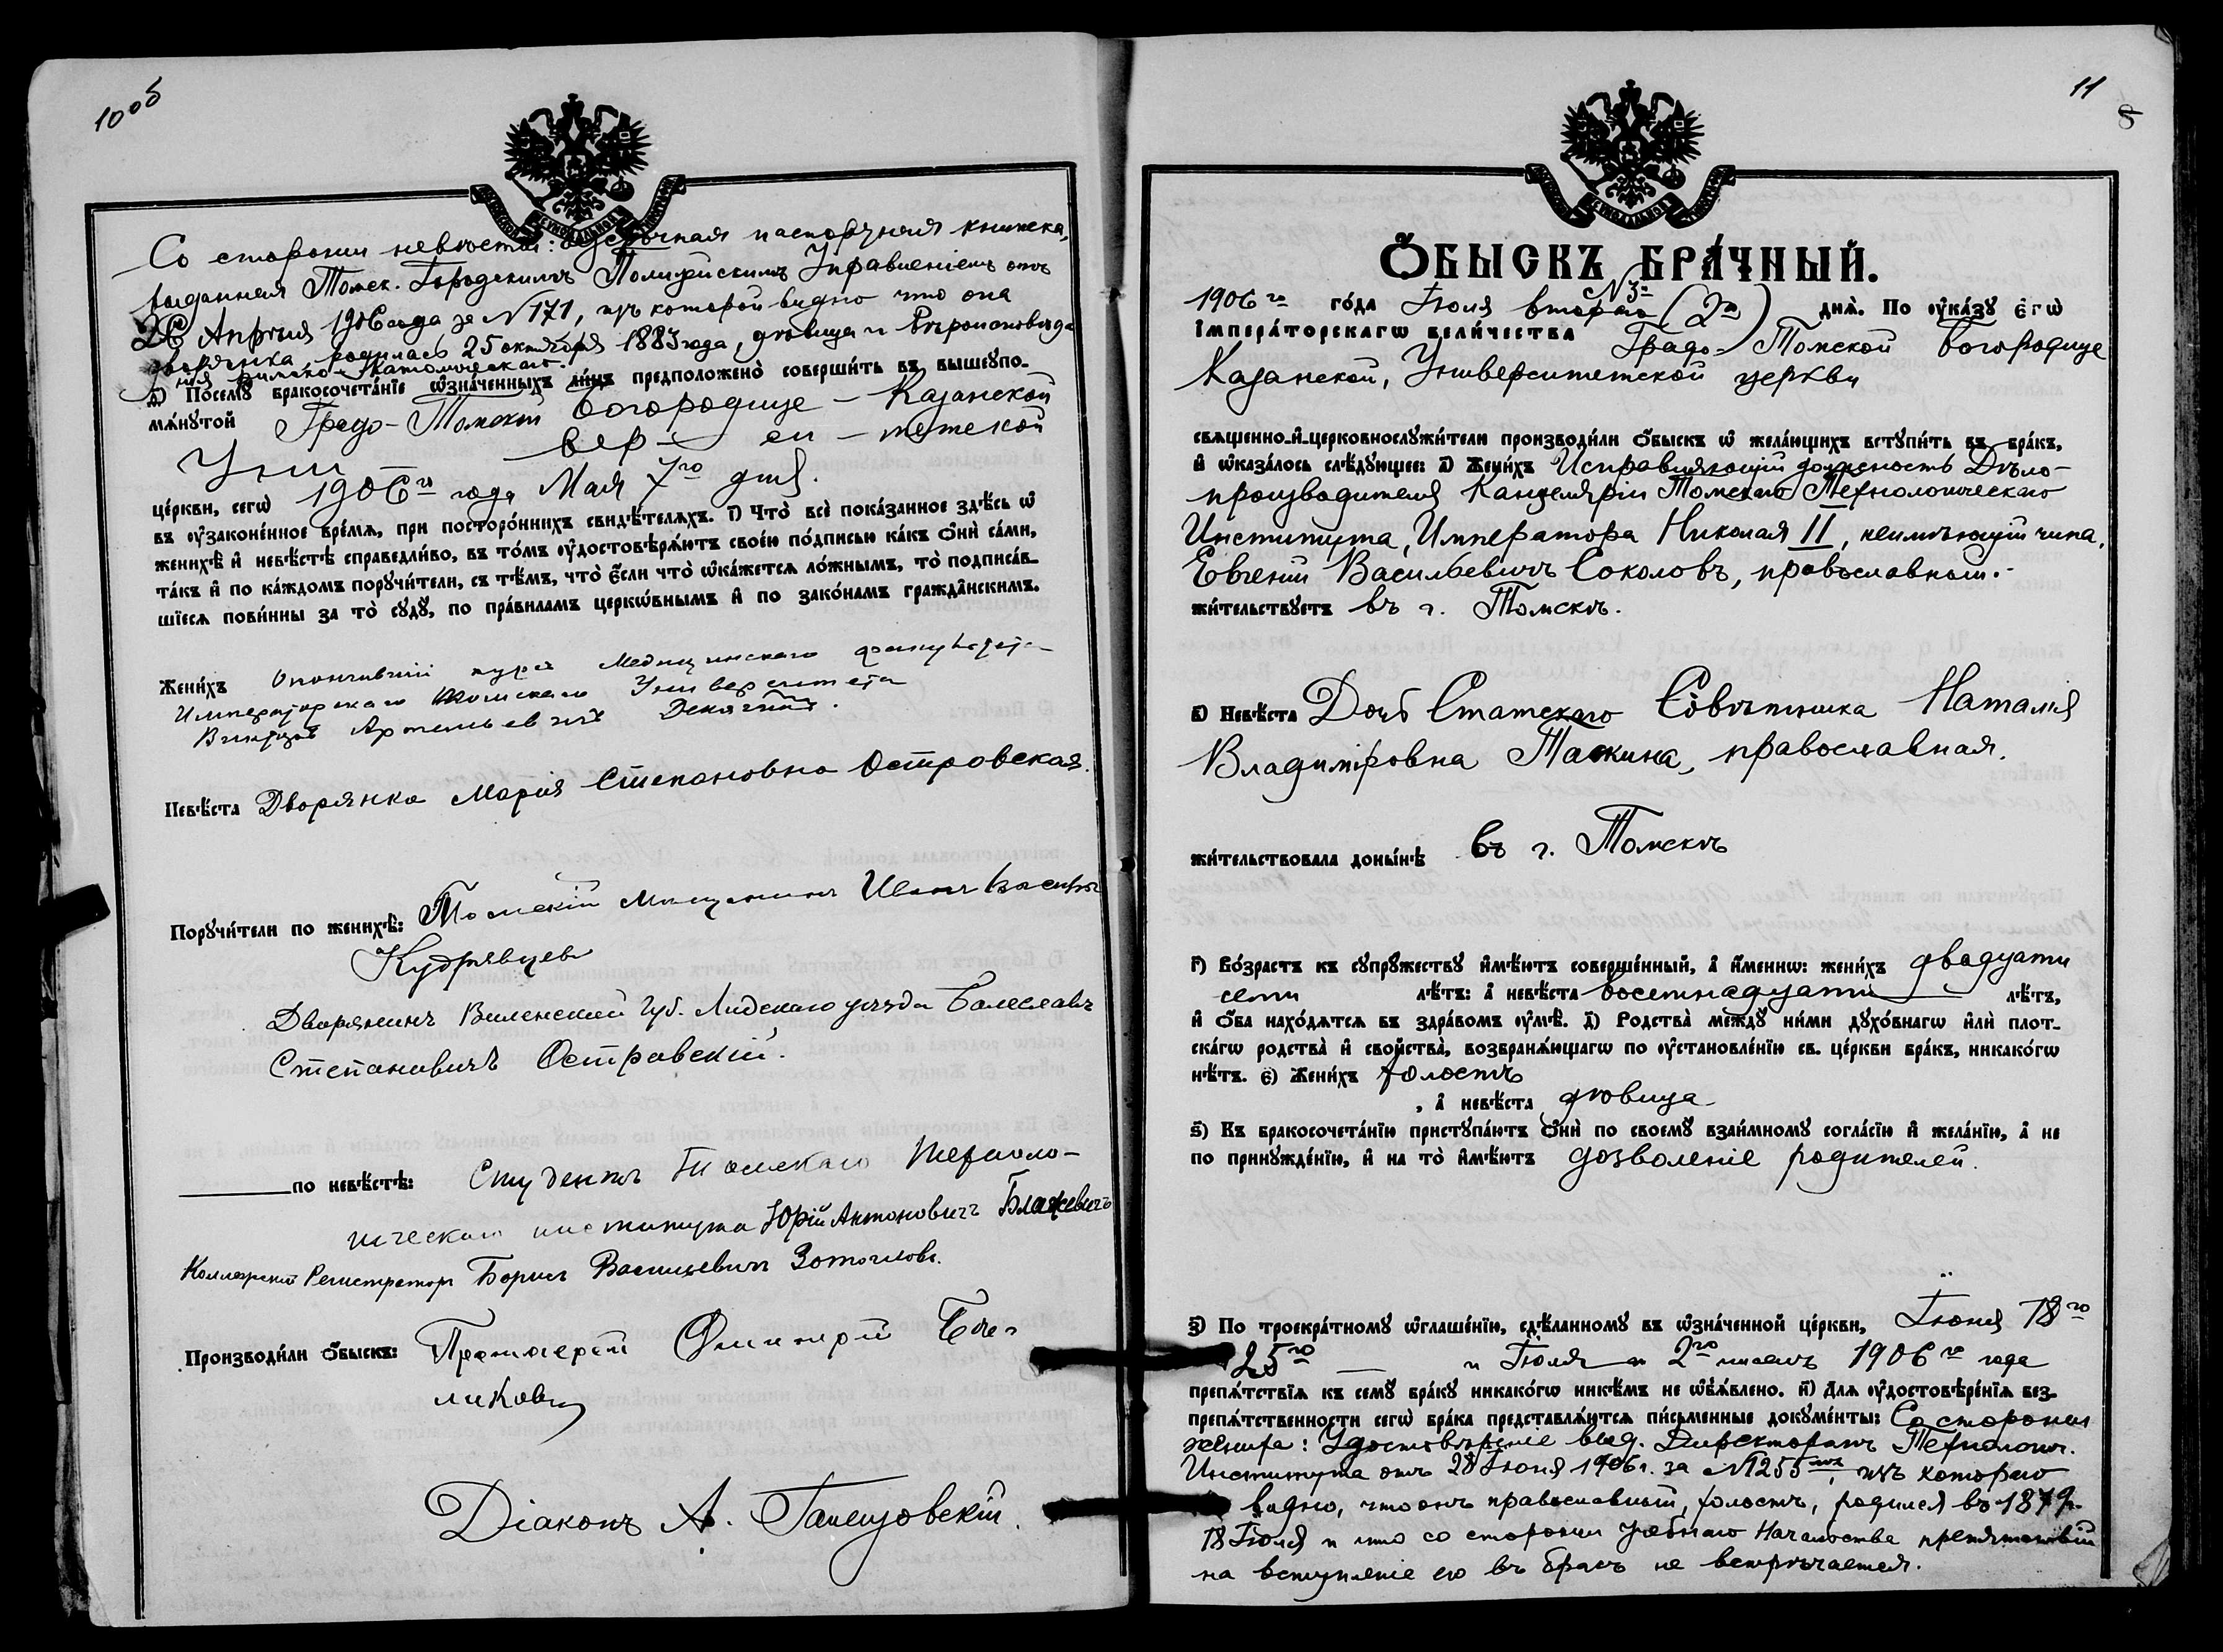 10 об
Со стороны невѣсты: безсрочная паспортная книжка,
выданная Томск. Городскимъ Полицейскимъ Управленіемъ отъ
26 Апрѣля 1906 года за N 171, изъ которой видно что она
дворянка, родилась 25 октября 1883 года, дѣвица и вѣроисповѣда
нія римско-католическаго.
д҃і) Посемꙋ̀ бракосочета́нїе ѡ҆зна́ченныхъ ли́цъ предположено̀ соверши́ть въ вышеꙋпо-
мѧ́нꙋтой Градо-Томской Богородице-Казанской
Уни — вер — си — тетской
це́ркви, сегѡ̀ 1906 го года Мая 7 го дня.
въ ᲂу҆законе́нное вре́мѧ, при посторо́ннихъ свидѣ́телѧхъ. і҃) Что̀ всѐ пока́занное здѣ́сь ѡ҆
женихѣ̀ и҆ невѣ́стѣ справедли́во, въ то́мъ ᲂу҆достовѣрѧ́ютъ свое́ю по́дписью ка́къ ѻ҆нѝ са́ми,
та́къ и҆ по ка́ждомъ порꙋчи́тели, съ тѣ́мъ, что̀ є҆́сли что̀ ѡ҆ка́жетсѧ ло́жнымъ, то̀ подписа́в-
шїесѧ пови́нны за то̀ сꙋдꙋ̀, по пра́виламъ церкѡ́внымъ и҆ по зако́намъ гражда́нскимъ.
Жени́хъ Окончившій курсъ Медицинскаго факультета
Императорскаго Томскаго Университета
Артемьевичъ
Невѣ́ста Дворянка Марія Степановна Островская.
Порꙋчи́тели по женихѣ̀: Томскій мѣщанинъ Иванъ
Кудрявцевъ
Дворянинъ Виленской Губ. Лидскаго уѣзда Болеславъ
Степановичъ Островскій.
по невѣ́стѣ: Студентъ Томскаго Техноло-
гическаго института Юрій Антоновичъ Блажевичъ
Коллежскій Регистраторъ Борисъ Васильевичъ
Производи́ли ѻ҆́быскъ: Протоіерей Бѣ-
ликовъ
Діаконъ А.
11
8
Ѻ҆́БЫСКЪ БРА́ЧНЫЙ.
N 3й
1906 го го́да Іюля второго (2го) днѧ̀. По ᲂу҆ка́зꙋ є҆гѡ̀
і҆мпера́торскагѡ вели́чества Градо-Томской Богородице
Казанской, Университетской церкви
свѧще́нно-и҆-церковнослꙋжи́тели производи́ли ѻ҆́быскъ ѡ҆ жела́ющихъ встꙋпи́ть въ бра́къ,
и҆ ѡ҆каза́лось слѣ́дꙋющее: а҃) Жени́хъ Исправляющій должность Дѣло-
производителя Канцеляріи Томскаго Технологическаго
Института, Императора Николая II, неимѣющій чина,
Евгеній Васильевичъ Соколовъ, православный.
жи́тельствꙋетъ въ г. Томскѣ.
в҃) Невѣ́ста Дочь Статскаго Совѣтника Наталія
Владиміровна Таскина, православная.
жи́тельствовала доны́нѣ въ г. Томскѣ
г҃) Во́зрастъ къ сꙋпрꙋ́жествꙋ и҆мѣ́ютъ соверше́нный, а҆ и҆́меннѡ: жени́хъ двадцати
семи лѣ́тъ: а҆ невѣ́ста восемнадцати лѣ́тъ,
и҆ ѻ҆́ба нахо́дѧтсѧ въ здра́вомъ ᲂу҆мѣ̀. д҃) Родства̀ мѐждꙋ ни́ми дꙋхо́внагѡ и҆лѝ плот-
ска́гѡ родства̀ и҆ сво́йства̀, возбранѧ́ющагѡ по ᲂу҆становле́нїю св. це́ркви бра́къ, никако́гѡ
нѣ́тъ. є҃) Жени́хъ холостъ
, а҆ невѣ́ста дѣвица
ѕ҃) Къ бракосочета́нїю пристꙋпа́ютъ ѻ҆нѝ по своемꙋ̀ взаи́мномꙋ согла́сїю и҆ жела́нїю, а҆ не
по принꙋжде́нїю, и҆ на то̀ и҆мѣ́ютъ дозволеніе родителей.
з҃) По троекра́тномꙋ ѡ҆глаше́нїю, сдѣ́ланномꙋ въ ѡ҆зна́ченной це́ркви, Іюня 18 го
25 го — и Іюля 2 го 1906 го года
препѧ́тствїѧ къ семꙋ̀ бра́кꙋ никако́гѡ никѣ́мъ не ѡ҆б̾ѧ́влено. и҃) Длѧ ᲂу҆достовѣре́нїѧ без-
препѧ́тственности сегѡ̀ бра́ка представлѧ́ютсѧ пи́сьменные докꙋме́нты: Со стороны
жениха: Удостовѣреніе выд. Директоромъ Технолог.
Института отъ 28 Іюня 1906 г. за N 1255, изъ котораго
видно, что онъ православный, холостъ, родился въ 1879 г.
18 Іюля и что со стороны Учебнаго Начальства препятствій
на вступленіе его въ бракъ не встрѣчается.